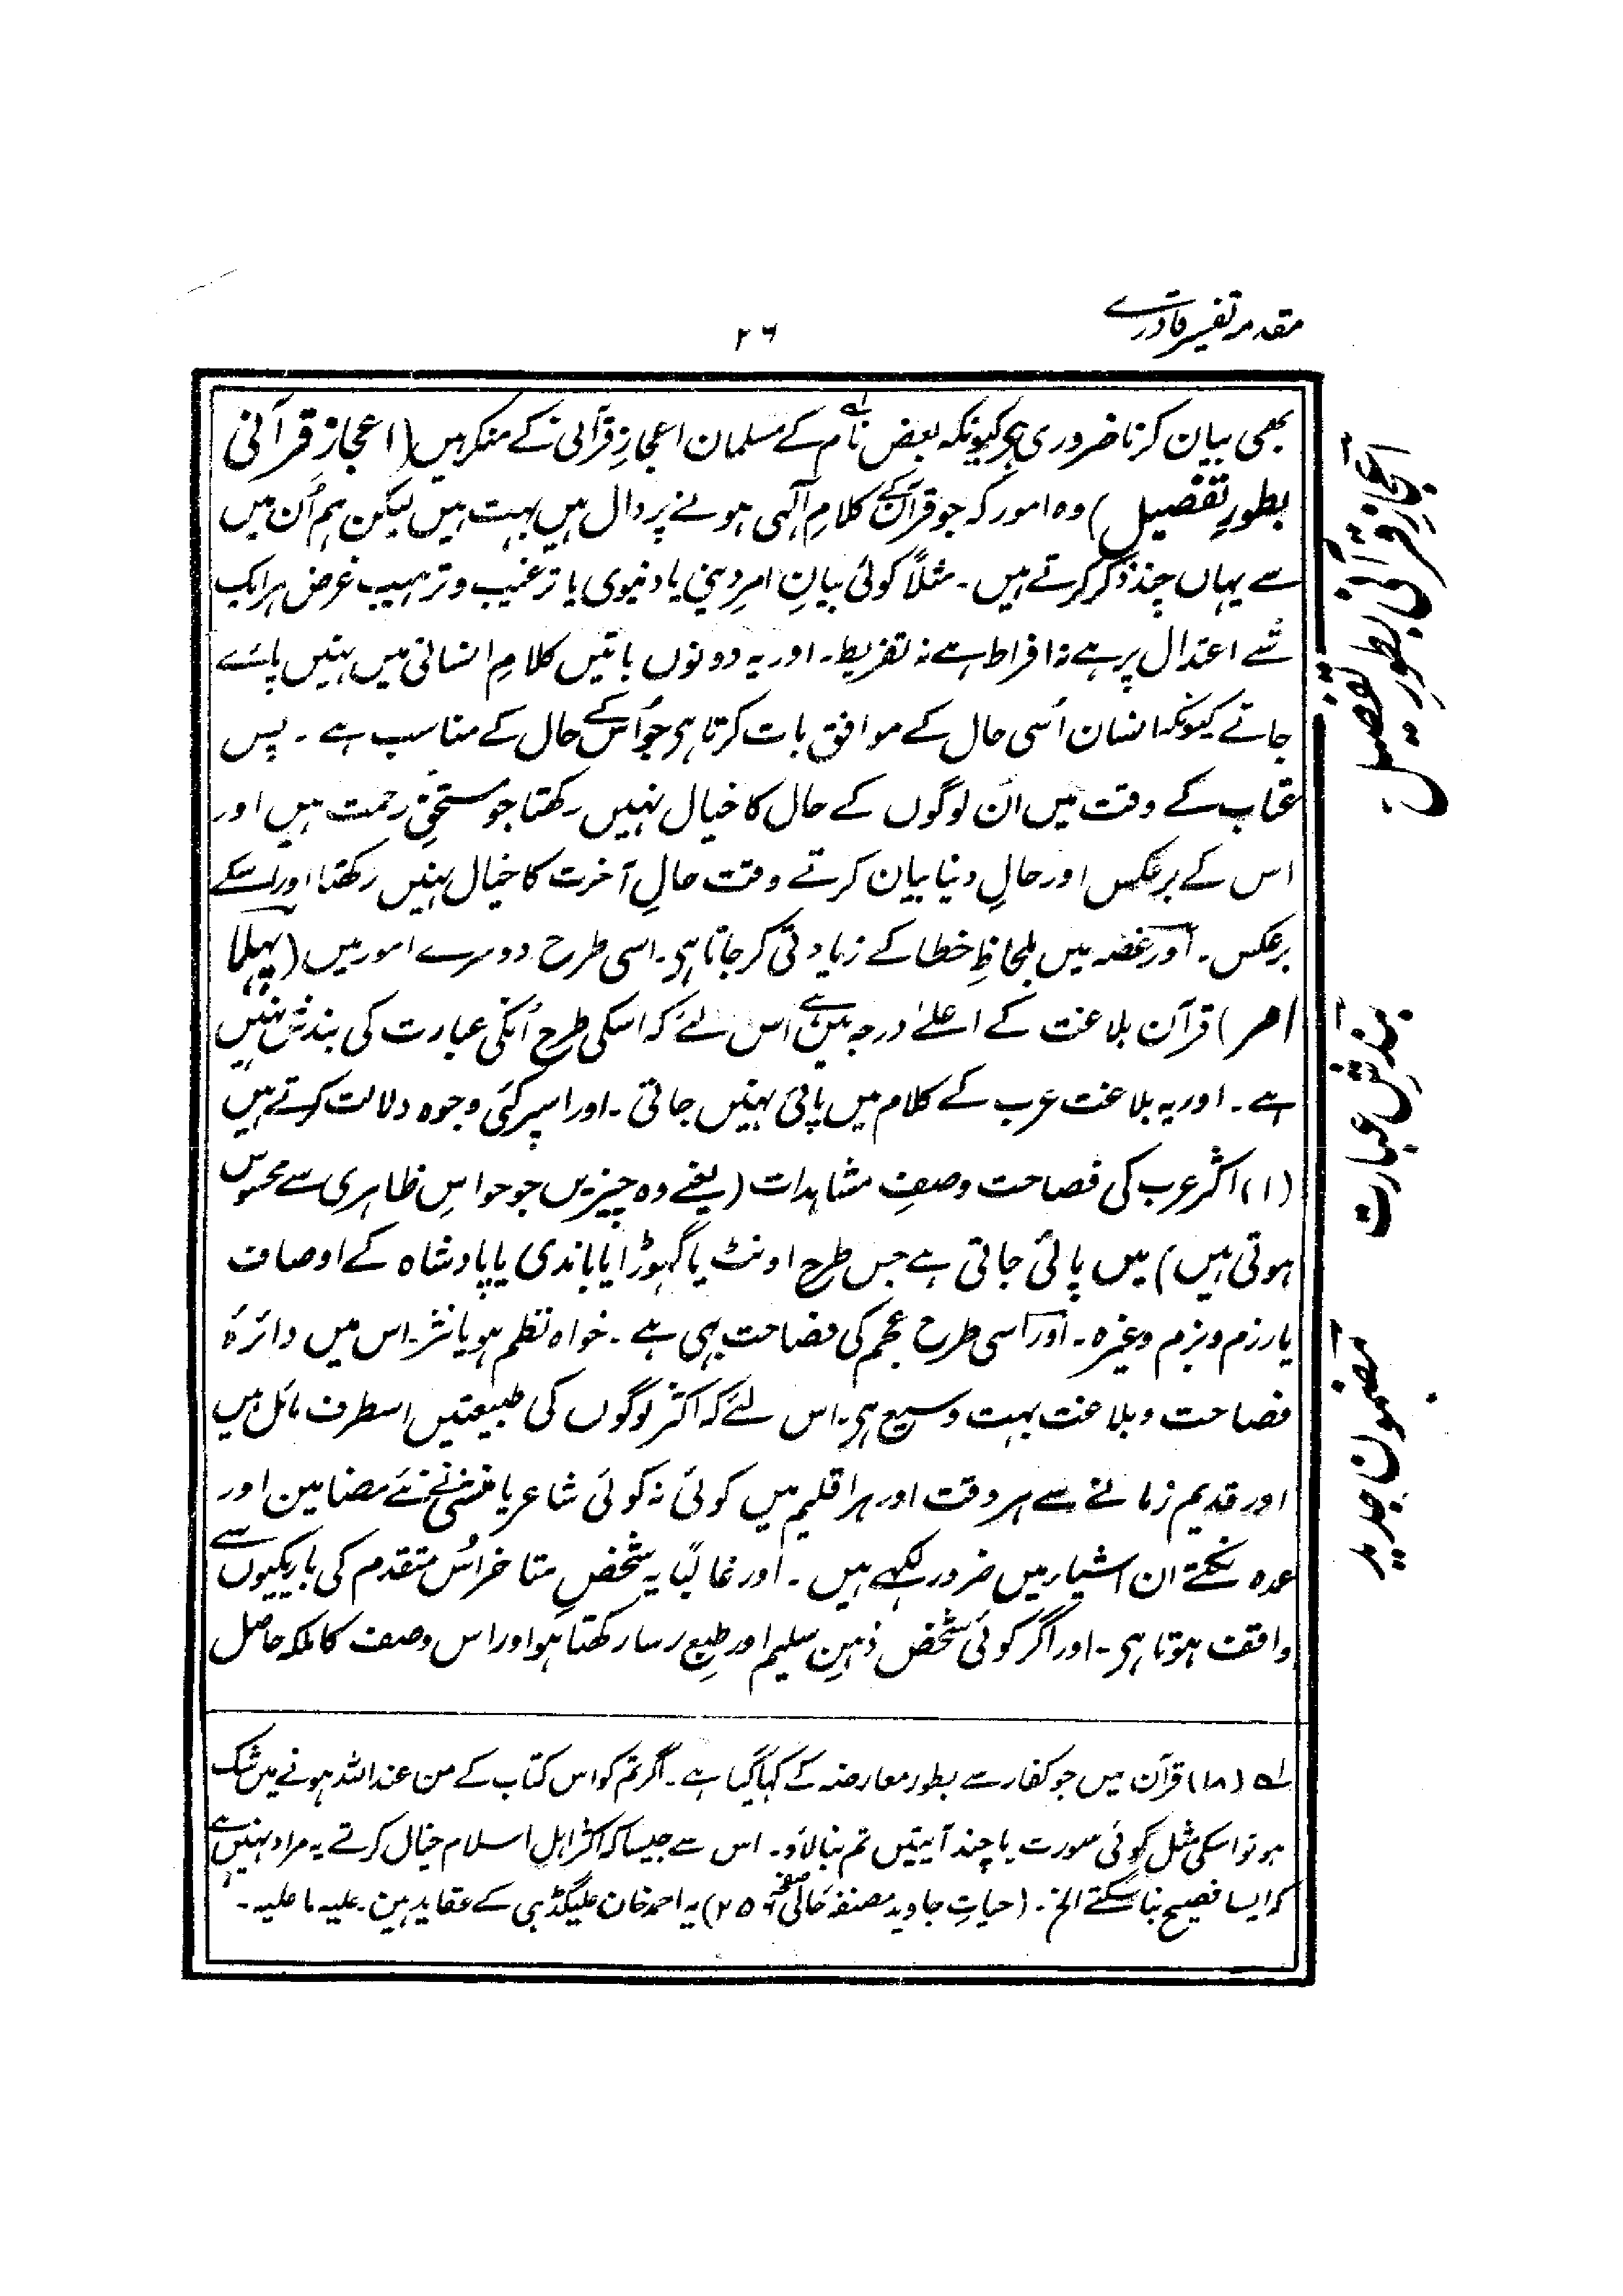 مقدمہ تفسیر قادری
۲۶
بھی بیان کرنا ضروری ہی کیونکہ بعض نام کے مسلمان اعجازِ قرآنی کے منکر ہیں (اعجازِ قرآنی
بطورِ تفصیل) وہ امور کہ جو قرآن کے کلامِ الٰہی ہونے پر دال ہیں بہت ہیں لیکن ہم اُن میں
سے یہاں چند ذکر کرتے ہیں ۔ مثلاً کوئی بیانِ امرِ دینی یا دنیوی یا ترغیب و ترہیب غرض ہر ایک
شے اعتدال پر ہے نہ افراط ہے نہ تفریط ۔ اور یہ دونوں باتیں کلامِ انسانی میں نہیں پائے
جاتے کیونکہ انسان اُسی حال کے موافق بات کرتا ہی جو اُس کے حال کے مناسب ہے ۔ پس
عتاب کے وقت میں ان لوگوں کے حال کا خیال نہیں رکھتا جو مستحقِ رحمت ہیں اور
اس کے برعکس اور حالِ دنیا بیان کرتے وقت حالِ آخرت کا خیال نہیں رکھتا اور اسکے
برعکس ۔ اور غصہ میں بلحاظِ خطا کے زیادتی کر جاتا ہی ۔ اسی طرح دوسرے امور میں (پہلا
امر) قرآن بلاغت کے اعلیٰ درجہ میں ہے اس لئے کہ اسکی طرح اُنکی عبارت کی بندش نہیں
ہے ۔ اور یہ بلاغت عرب کے کلام میں پائی نہیں جاتی ۔ اور اسپر کئی وجوہ دلالت کرتے ہیں
(۱) اکثر عرب کی فصاحت وصفِ مشاہدات (یعنے وہ چیزیں جو حواسِ ظاہری سے محسوس
ہوتی ہیں) میں پائی جاتی ہے جس طرح اونٹ یا گہوڑا یا باندی یا پادشاہ کے اوصاف
یا رزم و بزم وغیرہ ۔ اور اسی طرح عجم کی فصاحت بھی ہے ۔ خواہ نظم ہو یا نثر ۔ اس میں دائرۂ
فصاحت و بلاغت بہت وسیع ہی ۔ اس لئے کہ اکثر لوگوں کی طبیعتیں اسطرف مائل ہیں
اور قدیم زمانے سے ہر وقت اور ہر اقلیم میں کوئی نہ کوئی شاعر یا منشی نے نئے مضامین اور
عدہ نکتے ان اشیار میں ضرور لکھے ہیں ۔ اور غالباً یہ شخصِ متاخر اُس متقدم کی باریکیوں سے
واقف ہوتا ہی ۔ اور اگر کوئی شخص ذہنِ سلیم اور طبعِ رسا رکھتا ہو اور اس وصف کا ملکہ حاصل
لہ (۱۸) قرآن میں جو کفار سے بطور معارضہ کے کہا گیا ہے ۔ اگر تم کو اس کتاب کے من عند اللہ ہونے میں شک
ہو تو اسکی مثل کوئی سورت یا چند آیتیں تم بنا لاؤ ۔ اس سے جیسا کہ اکثر اہلِ اسلام خیال کرتے یہ مراد نہیں ہے
کہ ایسا فصیح بنا سکتے الخ ۔ (حیاتِ جاوید مصنفہ حالی صفحہ ۲۵۶) یہ احمد خان علیگڈہی کے عقاید ہین ۔ علیہ ما علیہ ۔
اعجازِ قرآنی بطورِ تفصیل
بندشِ عبارت
مضمون جدید